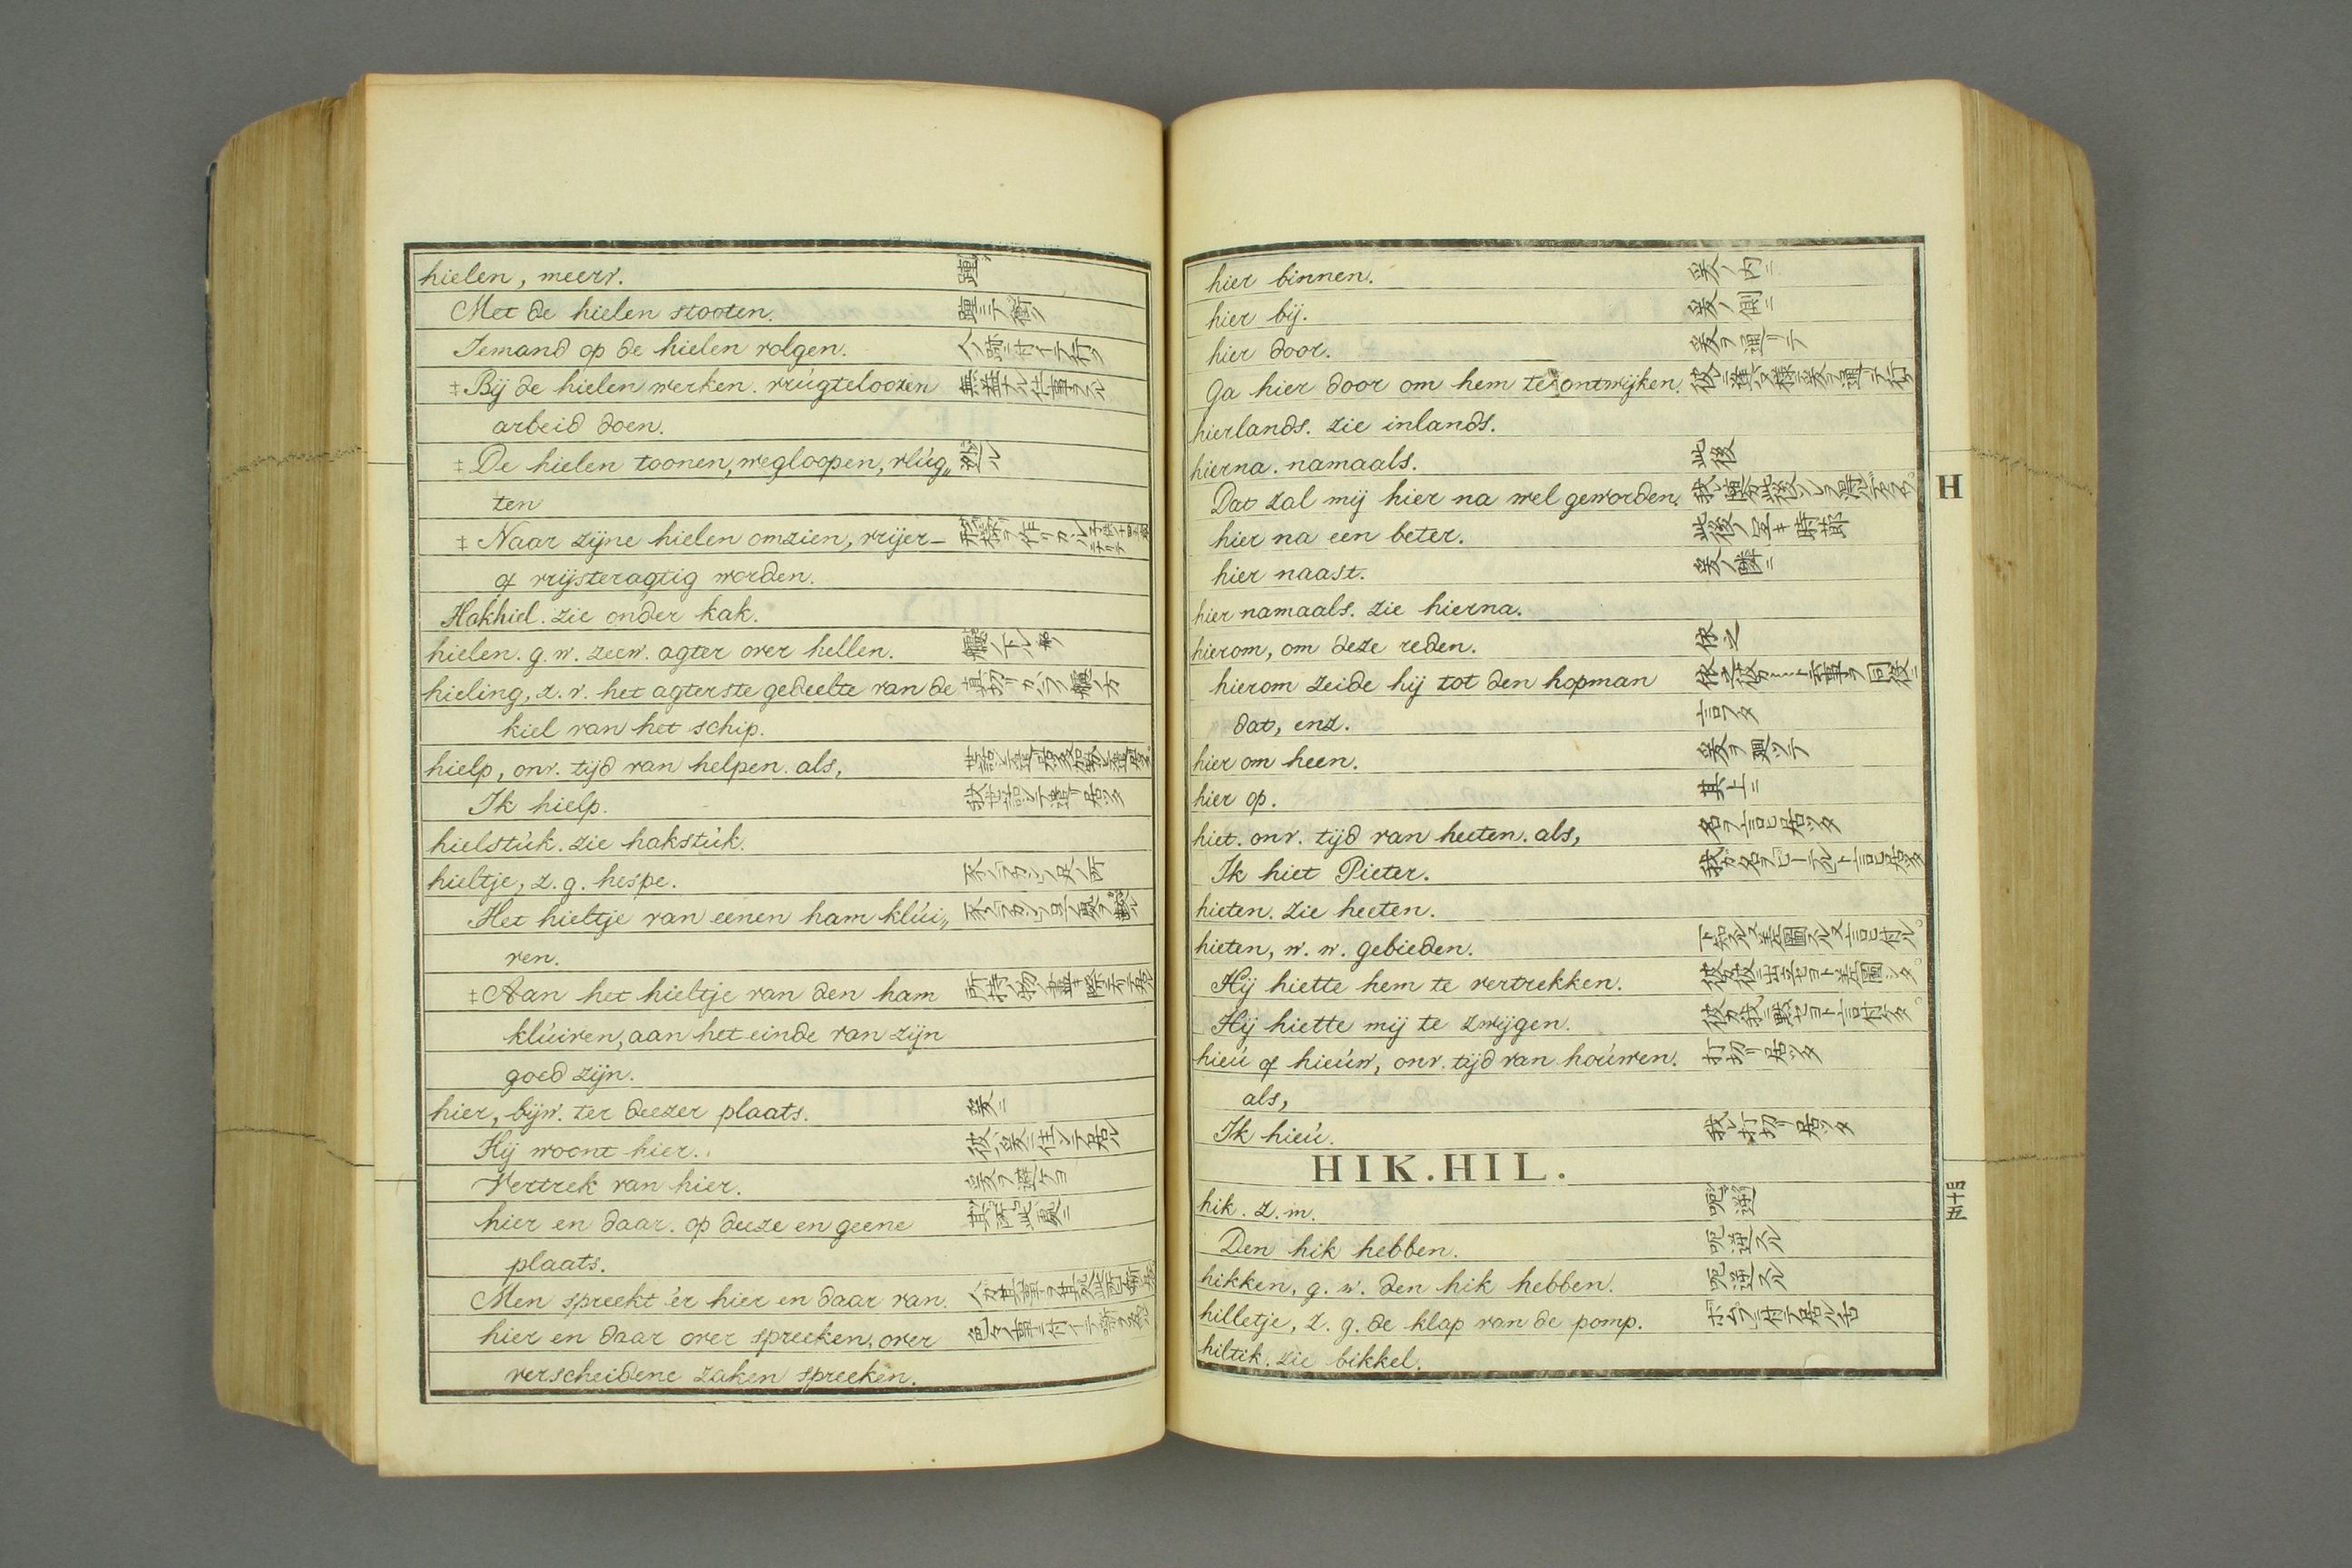 hielen, meerv. 踵
Met de hielen stooten. 踵ニテ衝ク
Iemand op de hielen volgen. 人ノ跡ニ付イテ行ク
‡ Bij de hielen werken. vrúgteloozen 無益ナル仕事ヲスル
arbeid doen.
‡ De hielen toonen, wegloopen, vlúg„ 逃ル
ten
‡ Naar zijne hielen omzien, vrijer-
of vrijsteragtig worden.
Hakhiel. zie onder kak.
hielen. g. w. zeew. agter over hellen.
hieling, z. v. het agterste gedeelte van de
kiel van het schip.
hielp, onv. tijd van helpen. als,
Ik hielp.
hielstúk. zie hakstúk.
hieltje, z. g. hespe.
Het hieltje van eenen ham klúi„
ven.
‡ Aan het hieltje van den ham
klúiven, aan het einde van zijn
goed zijn.
hier, bijw. ter deezer plaats. 爰ニ
Hij woont hier. 彼ハ爰ニ住シテ居ル
Vertrek van hier. 爰ヲ避ケヨ
hier en daar. op deeze en geene
plaats.
Men spreekt 'er hier en daar van.
hier en daar over spreeken, over
verscheidene zaken spreeken.
hier binnen. 爰ノ内ニ
hier bij. 爰ノ側ニ
hier door. 爰ヲ通リテ
Ga hier door om hem te ontwijken. 彼ニ逢ハヌ様ニ爰ヲ通リテ行ケ
hierlands. zie inlands.
hierna. namaals. 此後
Dat zal mij hier na wel geworden.
hier na een beter. 此後ノ宜キ時節
hier naast. 爰ノ隣ニ
hier namaals. zie hierna.
hierom, om deze reden. 依之
hierom zeide hij tot den hopman
dat, enz. 言フタ
hier om heen. 爰ヲ廻ツテ
hier op. 其上ニ
hiet. onv. tijd van heeten. als, 名ヲ言ヒ居ツタ
Ik hiet Pieter. 我ガ名ヲピーテルト言ヒ居タ
hieten. zie heeten.
hieten, w. w. gebieden. 下知スル又差圖スル又言ヒ付ル。
Hij hiette hem te vertrekken. 彼ガ彼ニ出立セヨト差圖シタ。
Hij hiette mij te zwijgen. 彼ガ我ニ黙セヨト言付タ。
hieú of hieúw, onv. tijd van hoúwen. 打切リ居ツタ
als,
Ik hieú. 我レ打切リ居ツタ
HIK. HIL.
hik. z. m. 呃逆
Den hik hebben. 呃逆スル
hikken, g. w. den hik hebben. 呃逆スル
hilletje, z. g. de klap van de pomp. ポムプニ付テ居ル舌
hiltik. zie bikkel.
H
四十五